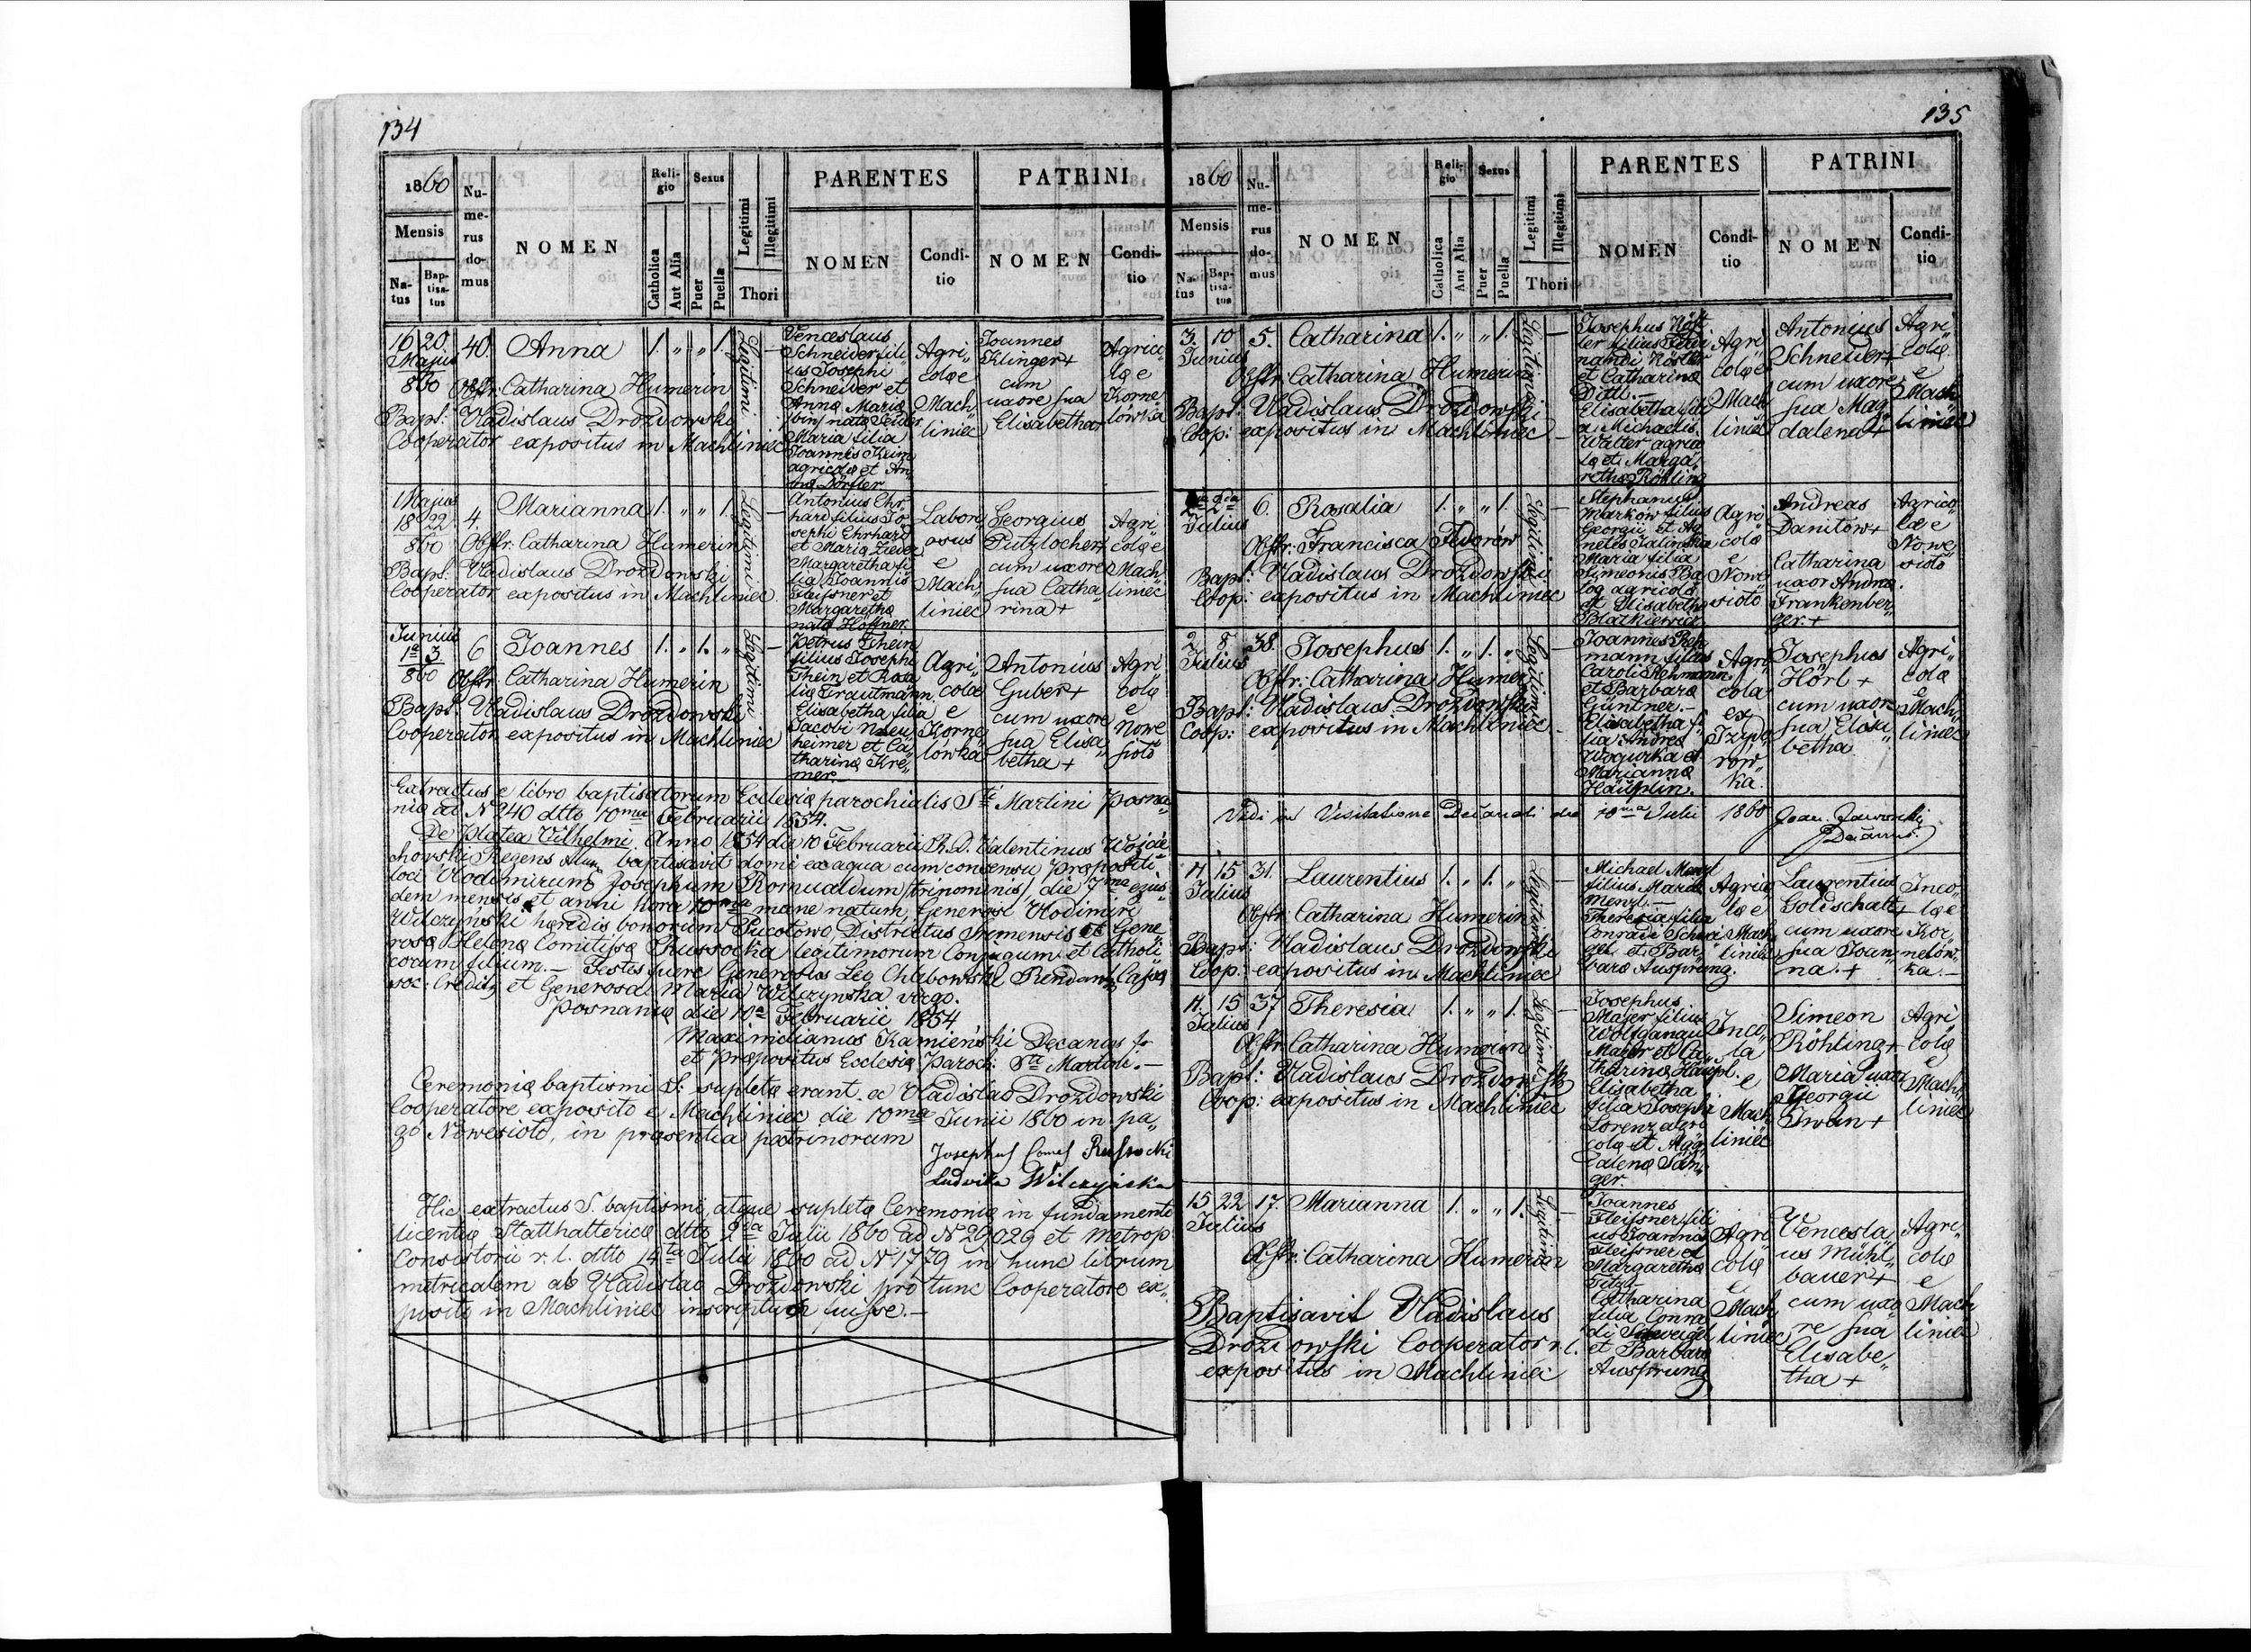 134
1860
Mensis
Na-
tus
Bap-
tisa-
tus
Nu-
me-
rus
do-
mus
NOMEN
Reli-
gio
Catholica
Aut Alia
Sexus
Puer
Puella
Legitimi
Illegitimi
Thori
PARENTES
NOMEN
Condi-
tio
PATRINI
NOMEN
Condi-
tio
16 20. 40. Anna 1. " " 1. Legitimi —
Majus
860 Obstr: Catharina Humerin
Bapt: Vladislaus Drozdowski
Cooperator expositus in Machliniec
Venceslaus
Schneider fili
us Josephi
Schneider et
Anna Maria
Maria filia
Joannis Keim
agricolæ et An
na Dörfler
Agri"
colæ e
Mach"
liniec
Joannes
Klinger +
cum
uxore sua
Elisabetha +
Agrico"
læ e
Korne"
lówka
Majus
18 22 4. Marianna 1. " " 1. Legitimi —
860 Obstr: Catharina Humerin
Bapt: Vladislaus Drozdowski
Cooperator expositus in Machliniec
Antonius Ehr"
hard filius Jo"
sephi Ehrhard
et Maria Zieder
Margaretha fi
lia Joannis
Fleissner et
Margaretha
nata Höffner
Labori"
osus
e
Mach"
liniec
Georgius
Putzlocher +
cum uxore
sua Catha"
rina +
Agri"
colæ e
Mach"
liniec
Junius
1a 3 6 Joannes 1. " 1. " Legitimi —
860 Obstr: Catharina Humerin
Bapt: Vladislaus Drozdowski
Cooperator expositus in Machliniec
Petrus Thein
filius Josephi
Thein et Rosa
lia Trautmann
Elisabetha filia
Jacobi Neu"
heimer et Ca"
tharina Kre"
mer.—
Agri"
colæ
e
Korne"
lówka
Antonius
Guber +
cum uxore
sua Elisa"
betha +
Agri"
colæ
e
Nowe
siolo
Extractus e libro baptisatorum Ecclesiæ parochialis Sti Martini Posna"
niæ ad N 240 dtto 10ma Februarii 1854.
De Platea Vilhelmi. Anno 1854 die 10 Februarii R.D. Valentinus Wojcie"
chowski Regens baptisavit domi ex aqua cum consensu præpositi
loci Vlodimirum Josephum Romualdum /trinominis/ die 7ma ejus"
dem mensis et anni hora 10ma mane natum, Generosi Vlodimiri
Wilczynski hæredis bonorum Distric̄tus Srimensis et Gene
rosæ Helenæ Comitissæ Russocka legitimorum Conjugum et Catholi"
corum filium.— Testes fuere Generosus Leo Chlebowski
soc: Credit et Generosa Maria Wilczynska virgo.
Posnaniæ die 10a Februarii 1854
Maximilianus Kamieński Decanus
et Præpositus Ecclesiæ Paroch: Sti Martini.—
Ceremoniæ baptismi S: supletæ erant a Vladislao Drozdowski
Cooperatore exposito e Machliniec die 10ma Junii 1860 in pa"
go Nowesioło, in præsentia patrinorum
Josephus Comes Russocki
Ludvika Wilczyńska
Hic extractus S. baptismi, atque supletæ Ceremoniæ in fundamento
licentiæ Statthaltericæ dtto 2da Julii 1860 ad N 29029 et Metrop
Consistorii r. l. dtto 14ta Julii 1860 ad N 1779 in hunc librum
metricalem ab Vladislao Drozdowski pro tunc Cooperatore ex"
posito in Machliniec inscriptum fuisse.—
135
1860
Mensis
Na-
tus
Bap-
tisa-
tus
Nu-
me-
rus
do-
mus
NOMEN
Reli-
gio
Catholica
Aut Alia
Sexus
Puer
Puella
Legitimi
Illegitimi
Thori
PARENTES
NOMEN
Condi-
tio
PATRINI
NOMEN
Condi-
tio
3. 10 5. Catharina 1. " " 1. Legitimi —
Junius
Obstr: Catharina Humerin
Bapt: Vladislaus Drozdowski
Coop: expositus in Machliniec —
Josephus Röst
ler filius Ferdi
nandi Röstler
et Catharina
Dittl.—
Elisabetha fili
a Michaelis
Walter agrico
læ et Marga"
retha Röhling
Agri"
colæ e
Mach"
liniec
Antonius
Schneider +
cum uxore
sua Mag"
dalena +
Agri"
colæ
e
Mach"
liniec
Julius 6. Rosalia 1. " " 1. Legitimi —
Obstr: Francisca Fedorów
Bapt: Vladislaus Drozdowski
Coop: expositus in Machliniec
Stephanus
Markow filius
Georgii et Ag"
netis
Maria filia
Simeonis Ba
log agricolæ
et Elisabetha
Agri"
colæ
e
Nowe"
siolo
Andreas
Danilow +
Catharina
uxor Andreæ
Frankenber"
ger. +
Agrico"
læ e
Nowe"
siolo
2. 8. 38. Josephus 1. " 1. " Legitimi —
Julius
Obstr: Catharina Humer
Bapt: Vladislaus Drozdowski
Coop: expositus in Machliniec —
Joannes Reh"
mann filius
Caroli Rehmann
et Barbara
Güntner.—
Elisabetha fi
lia Andreæ
et
Marianna
Häuplin.
Agri"
cola
ex
Izydo"
rów"
ka.
Josephus
Hörl +
cum uxore
sua Elisa"
betha
Agri"
colæ
e
Mach"
liniec
Vidi in Visitatione Decanali die 10ma Julii 1860 Joan. Jaworski
Decanus.
11 15 31. Laurentius 1. " 1. " Legitimi —
Julius
Obstr: Catharina Humerin
Bapt: Vladislaus Drozdowski
Coop: expositus in Machliniec
Michael Menzl
filius Mariæ
Menzl.—
Theresia filia
Conradi Schwei
gel et Bar"
bara Ausprung.
Agrico"
læ e
Mach"
liniec
Laurentius
Goldschalt +
cum uxore
sua Joan"
na. +
Inco"
læ e
Kor"
nelów"
ka.—
11. 15 37. Theresia 1. " " 1. Legitimi —
Julius
Obstr: Catharina Humerin
Bapt: Vladislaus Drozdowski
Coop: expositus in Machliniec
Josephus
Majer filius
Wolfgangi
Majer et Ca"
tharina Häupl.
Elisabetha
filia Josephi
Lorenz agri
colæ et Mag"
dalena Sän"
ger.
Inco"
la
e
Mach"
liniec
Simeon
Röhling +
Maria uxor
Georgii
Irwin +
Agri"
colæ
e
Mach"
liniec
15 22 17. Marianna 1. " " 1. Legitimi —
Julius
Obstr: Catharina Humerin
Baptisavit Vladislaus
Drozdowski Cooperator r. l.
expositus in Machliniec
Joannes
Fleissner fili
us Joannis
Fleissner et
Margaretha
Catharina
filia Conra
di Schweigel
et Barbara
Ausprung
Agri"
colæ
e
Mach"
liniec
Vencesla"
us Mühl"
bauer +
cum uxo
re sua
Elisabe"
tha +
Agri"
colæ
e
Mach
liniec